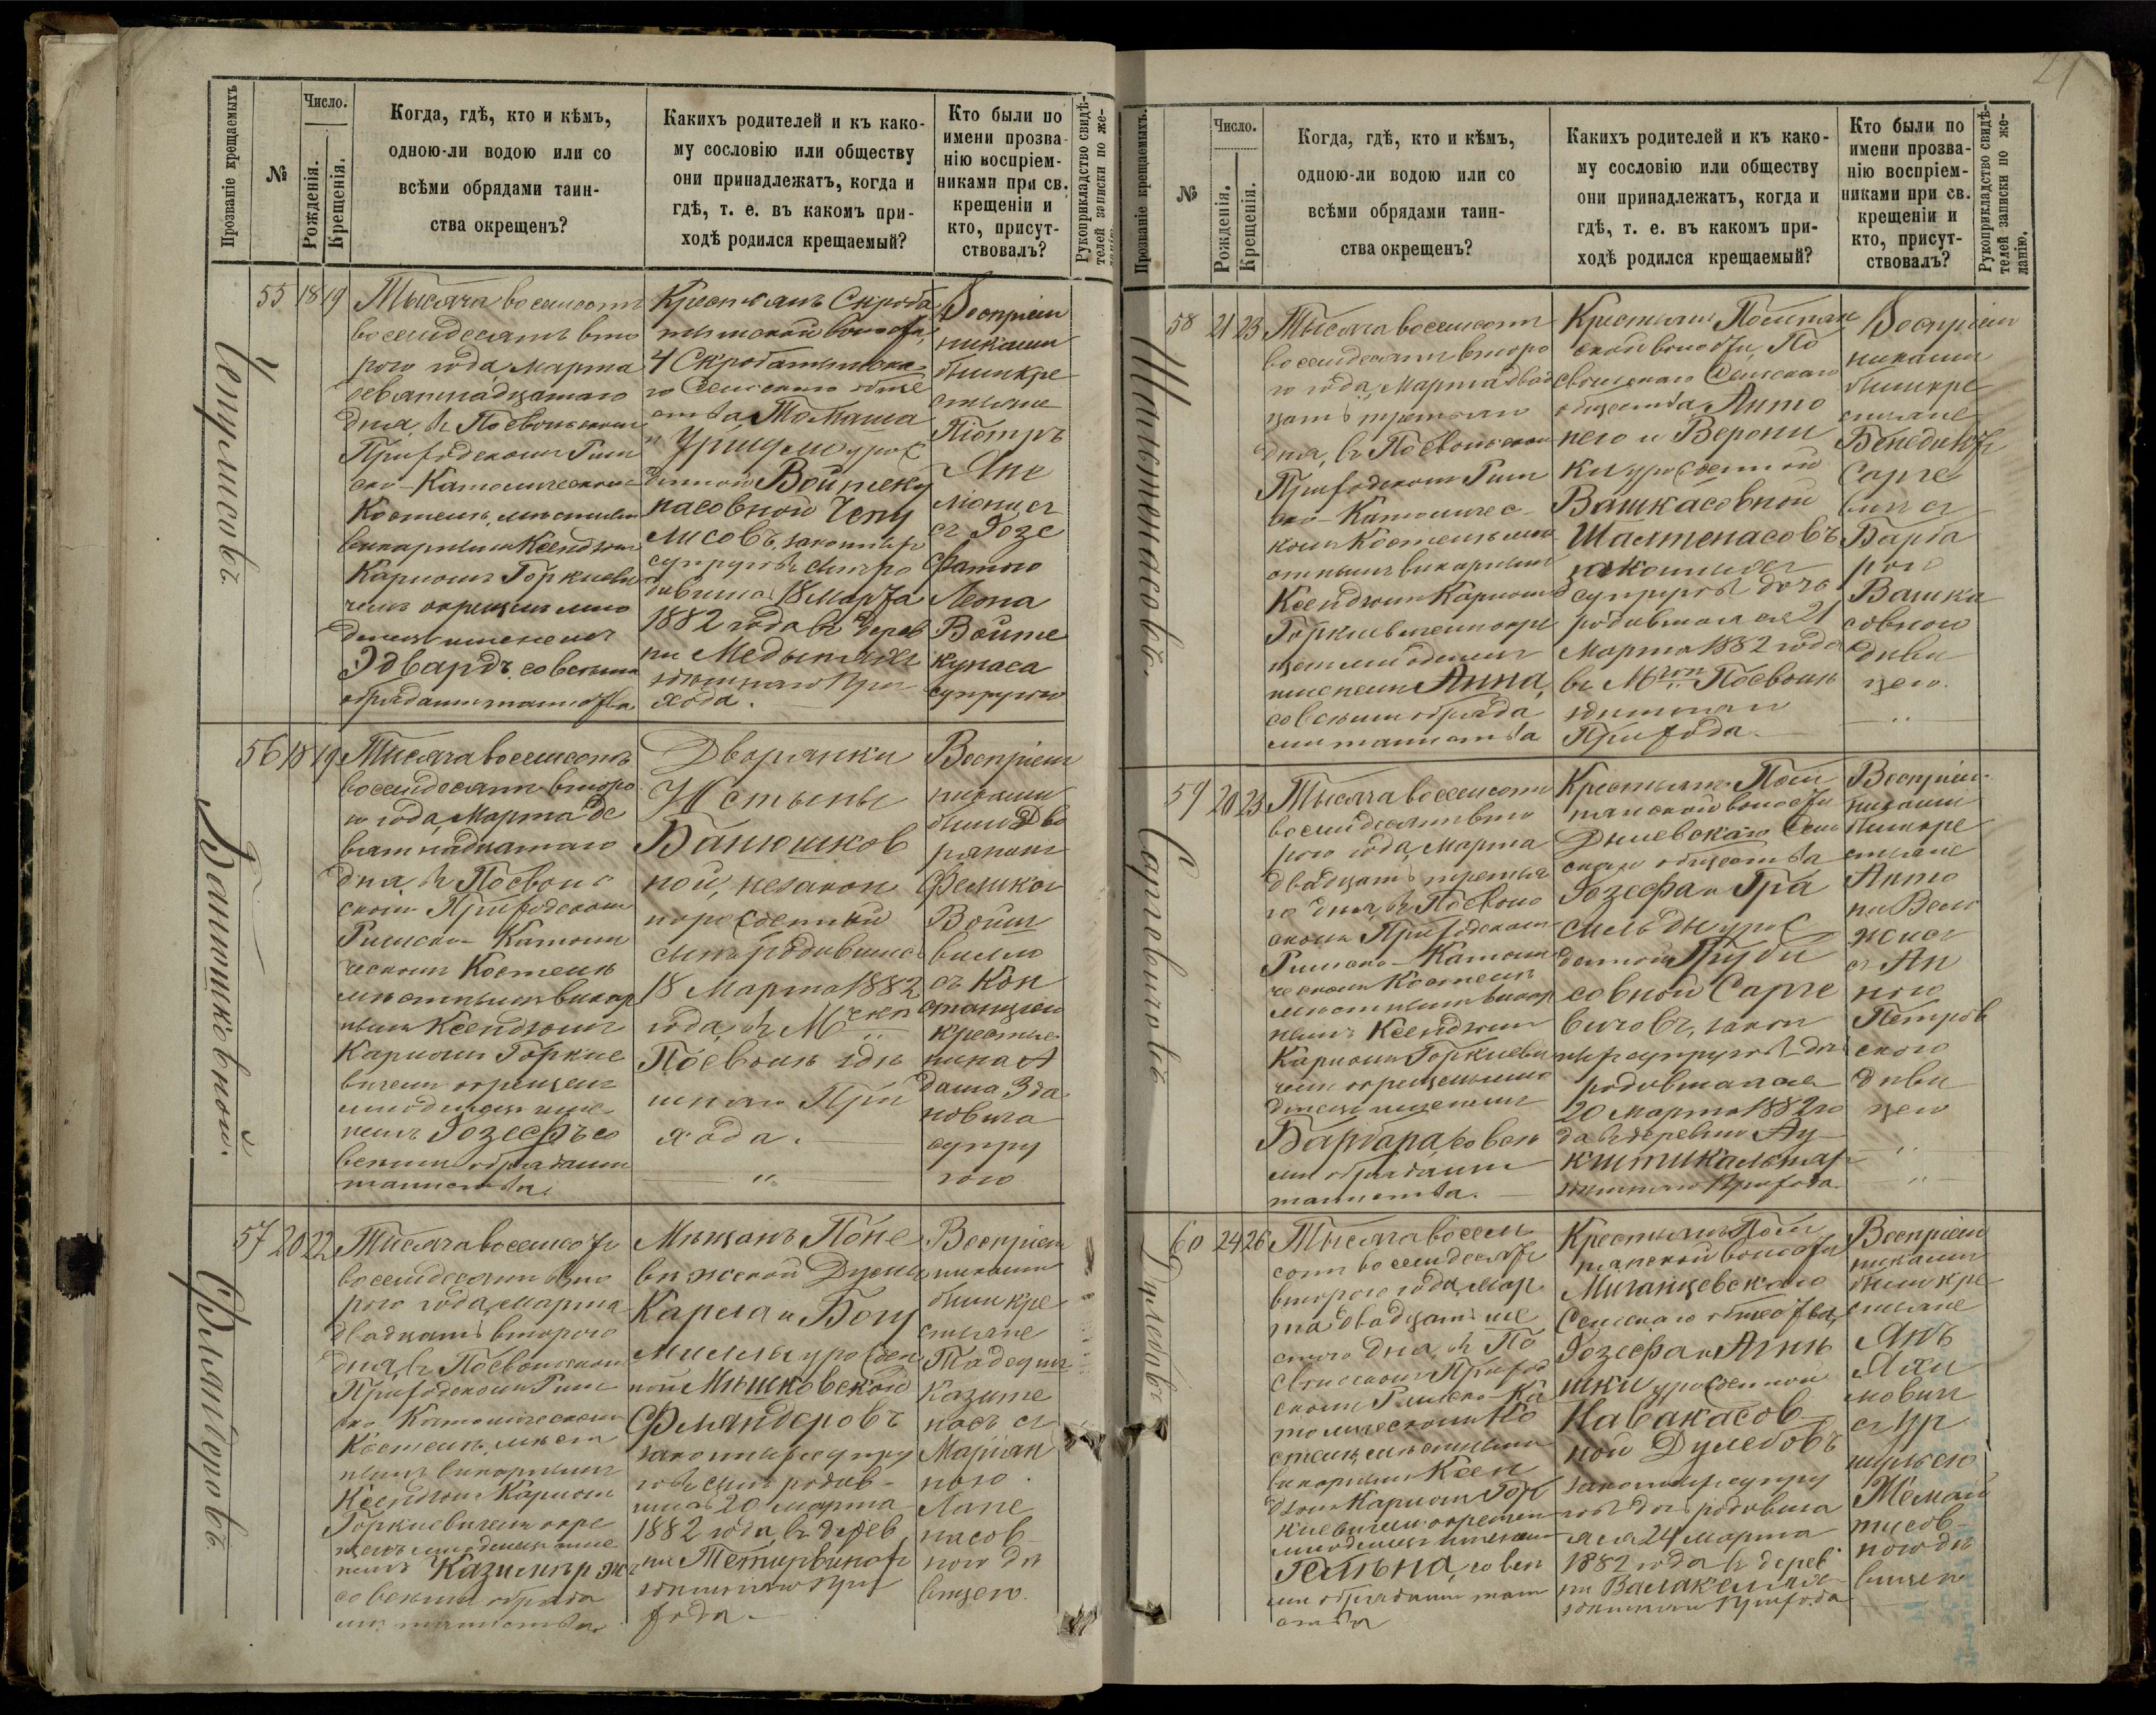 Прозваніе крещаемыхъ
№
Число.
Рожденія.
Крещенія.
Когда, гдѣ, кто и кѣмъ,
одною-ли водою или со
всѣми обрядами таин-
ства окрещенъ?
Какихъ родителей и къ како-
му сословію или обществу
они принадлежатъ, когда и
гдѣ, т. е. въ какомъ при-
ходѣ родился крещаемый?
Кто были по
имени прозва-
нію воспріем-
никами при св.
крещеніи и
кто, присут-
ствовалъ?
Рукоприкладство свидѣ-
телей записки по же-
ланію.
Чепулисовъ
55 18 19
Тысяча восемсотъ
восемдесятъ вто
рого года, Марта
девятнадцатаго
дня, въ Посвольском
Приходскомъ Рим
ско-Католическомъ
Костелѣ, мѣстнымъ
викарнымъ Ксендзомъ
Каролемъ Горкеви
чемъ окрещенъ мла
денецъ именемъ
Эдвардъ, со всѣми
обрядами таинства
Крестьянъ Скроба
тышской волости,
Скробатышска
го Сельскаго обще
ства Томаша
и Урщули урож
денной Войтеку
насовной Чепу
лисовъ, законныхъ
супруговъ сынъ ро
дився 18 Марта
1882 года въ дерев
ни
здѣшняго При
хода.
Воспріем
никами
были кре
стьяне
Піотръ
съ Іозе
фатою
Леона
Войте
кунаса
супругою
Банюшковной
56 18 19
Тысяча восемсотъ
восемдесятъ второ
го года, Марта де
вятнадцатаго
дня, въ Посволь
скомъ Приходскомъ
Римско-Католи
ческомъ Костелѣ
мѣстнымъ викар
нымъ Ксендзомъ
Каролемъ Горке
вичемъ окрещенъ
младенецъ име
немъ Іозефъ со
всѣми обрядами
таинства.
Дворянки
Юстыны
Банюшков
ной, незакон
норожденный
сынъ родився
18 Марта 1882
года, въ Мѣстеч
Посволь здѣ
шняго При
хода.
Воспріем
никами
были Дво
рянинъ
Феликсъ
Войт
вилло
съ Кон
станціею
крестья
нина А
дама Зда
новича
супру
гою
Филандеровъ
57 20 22
Тысяча восемсотъ
восемдесятъ вто
рого года, Марта
двадцать второго
дня, въ Посвольскомъ
Приходскомъ Рим
ско-Католическомъ
Костелѣ, мѣст
нымъ викарнымъ
Ксендзомъ Каролемъ
Горкевичемъ окре
щенъ младенецъ име
немъ Казимиръ
со всѣми обряда
ми таинства.
Мѣщанъ Поне
вѣжской Думы
Кароля и Богу
милы урожден
ной Мѣшковской
Филандеровъ
законныхъ супру
говъ сынъ родив
шись 20 Марта
1882 года, въ дерев
ни
здѣшняго При
хода.
Воспріем
никами
были кре
стьяне
Тадеушъ
Казите
насъ съ
Маріан
ною
Лапе
насов
ною дѣ
вицею.
21
Прозваніе крещаемыхъ.
№
Число.
Рожденія.
Крещенія.
Когда, гдѣ, кто и кѣмъ,
одною-ли водою или со
всѣми обрядами таин-
ства окрещенъ?
Какихъ родителей и къ како-
му сословію или обществу
они принадлежатъ, когда и
гдѣ, т. е. въ какомъ при-
ходѣ родился крещаемый?
Кто были по
имени прозва-
нію воспріем-
никами при св.
крещеніи и
кто, присут-
ствовалъ?
Рукоприкладство свидѣ-
телей записки по же-
ланію.
Шалтенасовъ.
58 21 23
Тысяча восемсотъ
восемдесятъ второ
го года, Марта двад
цать третьяго
дня, въ Посвольскомъ
Приходскомъ Рим
ско-Католичес
комъ Костелѣ мѣ
стнымъ викарнымъ
Ксендзомъ Каролемъ
Горкевичемъ окре
щенъ младенецъ
именемъ Анна,
со всѣми обряда
ми таинства
Крестьянъ
ской волости, По
свольскаго Сельскаго
общества Анто
него и Верони
ки урожденной
Вашкасовной
Шалтенасовъ
законныхъ
супруговъ дочь
родившаяся 21
Марта 1882 года
въ Посволь
здѣшняго
Прихода.
Воспріем
никами
были кре
стьяне
Бенедиктъ
Сарге
вичъ съ
Барба
рою
Вашка
совною
дѣви
цею.
Саргевичовъ
59 20 23
Тысяча восемсотъ
восемдесятъ вто
рого года, Марта
двадцать третья
го дня, въ Посволь
скомъ Приходскомъ
Римско-Католи
ческомъ Костелѣ
мѣстнымъ викар
нымъ Ксендзомъ
Каролемъ Горкеви
чемъ окрещенъ мла
денецъ именемъ
Барбара, со всѣ
ми обрядами
таинства.
Крестьянъ
волости
Сель
скаго общества
Іозефа и Гра
сильды урож
денной Груби
совной Сарге
вичовъ, закон
ныхъ супруговъ дочь
родившаяся
20 Марта 1882 го
да въ деревни
здѣшняго Прихода.
Воспріем
никами
были кре
стьяне
Анто
ни
съ Ан
ною
Петров
скою
дѣви
цею
Дулебовъ
60 24 26
Тысяча восем
сотъ восемдесятъ
второго года, Мар
та двадцать ше
стого дня, въ По
свольскомъ Приход
скомъ Римско-Ка
толическомъ Ко
стелѣ, мѣстнымъ
викарнымъ Ксен
дзомъ Каролемъ Гор
кевичемъ окрещенъ
младенецъ именемъ
Гельена, со всѣ
ми обрядами таин
ства
Крестьянъ
волости
Сельскаго общества,
Іозефа и Агнѣ
шки урожденной
Навакасов
ной Дулебовъ
законныхъ супру
говъ дочь родивша
яся 24 Марта
1882 года въ дерев
ни
здѣшняго Прихода
Воспріем
никами
были кре
стьяне
Янъ
Яхи
мовичъ
съ Ур
шулею
Жемай
тисов
ною дѣ
вицею